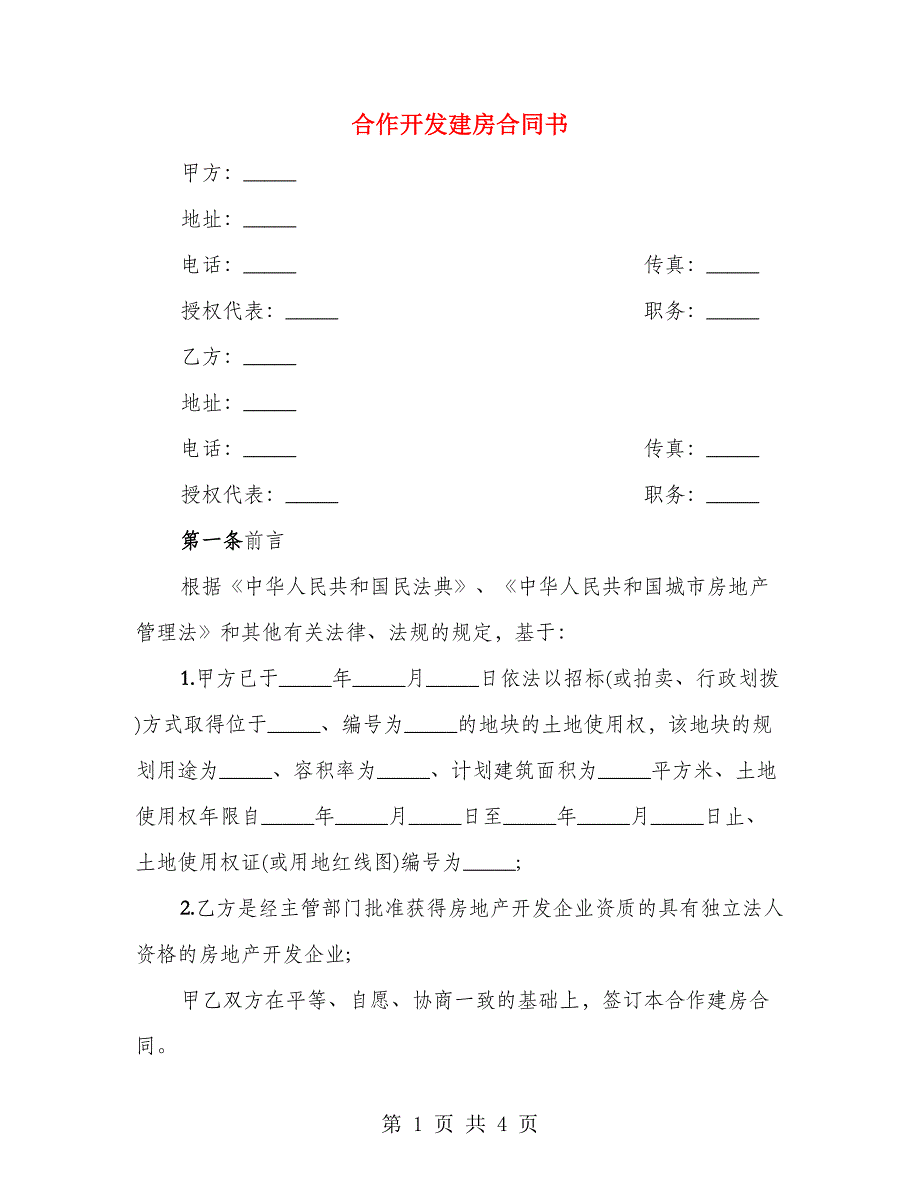 合作开发建房合同书
甲方：_____
地址：_____
电话：_____ 传真：_____
授权代表：_____ 职务：_____
乙方：_____
地址：_____
电话：_____ 传真：_____
授权代表：_____ 职务：_____
第一条前言
根据《中华人民共和国民法典》、《中华人民共和国城市房地产
管理法》和其他有关法律、法规的规定，基于：
1.甲方已于_____年_____月_____日依法以招标(或拍卖、行政划拨
)方式取得位于_____、编号为_____的地块的土地使用权，该地块的规
划用途为_____、容积率为_____、计划建筑面积为_____平方米、土地
使用权年限自_____年_____月_____日至_____年_____月_____日止、
土地使用权证(或用地红线图)编号为_____;
2.乙方是经主管部门批准获得房地产开发企业资质的具有独立法人
资格的房地产开发企业;
甲乙双方在平等、自愿、协商一致的基础上，签订本合作建房合
同。
第 1 页 共 4 页